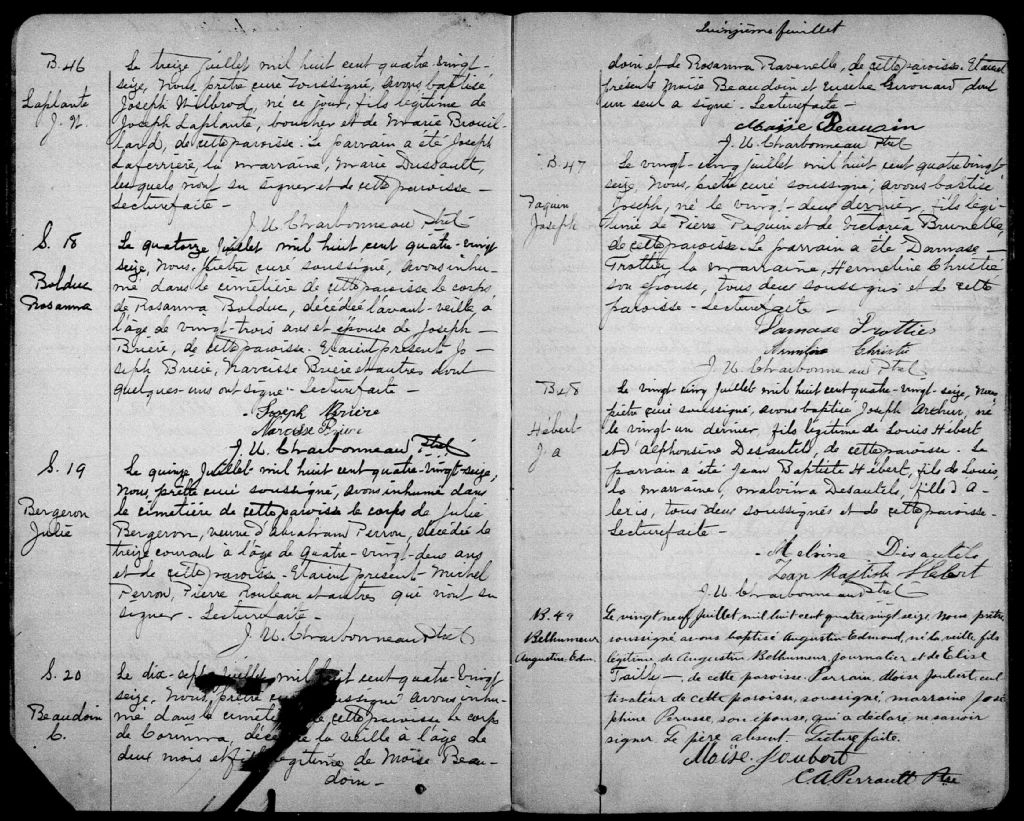 B. 46
Laplante
J. W.
Le treize juillet mil huit cent quatre-vingt-
seize, Nous, prêtre curé soussigné, avons baptisé
Joseph Wilbrod, né ce jour, fils légitime de
Joseph Laplante, boucher et de Marie Brouil-
lard, de cette paroisse. Le parrain a été Joseph
Laferrière, la marraine, Marie Dussault,
lesquels n'ont su signer et de cette paroisse -
Lecture faite -
J. U. Charbonneau Ptre
S. 18
Bolduc
Rosanna
Le quatorze juillet mil huit cent quatre-vingt
seize, Nous, prêtre curé soussigné, avons inhu-
mé dans le cimetière de cette paroisse le corps
de Rosanna Bolduc, décédée l'avant-veille, à
l'âge de vingt-trois ans et épouse de Joseph -
Brière, de cette paroisse. Etaient présent Jo-
seph Brière, Narcisse Brière et autres dont
quelques-uns ont signé - Lecture faite -
Joseph Brière
Narcisse Brière
J. U. Charbonneau Ptre
S. 19
Bergeron
Julie
Le quinze juillet mil huit cent quatre-vingt-seize,
Nous, prêtre curé soussigné, avons inhumé dans
le cimetière de cette paroisse le corps de Julie
Bergeron, veuve d'Abraham Perron, décédée le
treize courant à l'âge de quatre-vingt-deux ans
et de cette paroisse - Etaient présent - Michel
Perron, Pierre Rouleau et autres qui n'ont su
signer - Lecture faite -
J. U. Charbonneau Ptre
S. 20
Beaudoin
C.
Le dix-sept juillet mil huit cent quatre-vingt
seize, Nous, prêtre curé soussigné avons inhu-
mé dans le cimetière de cette paroisse le corps
de Corinna, décédée la veille à l'âge de
deux mois et fille légitime de Moïse Beau-
doin -
Quinzième feuillet
doin et de Rosanna Ravenelle, de cette paroisse. Etaient
présents Moïse Beaudoin et Eusèbe Girouard dont
un seul a signé - Lecture faite -
Moïse Beaudoin
J. U. Charbonneau Ptre
B. 47
Paquin
Joseph
Le vingt-cinq juillet mil huit cent quatre vingt
seize, Nous, prêtre curé soussigné, avons baptisé
Joseph, né le vingt-deux dernier, fils légi-
time de Pierre Paquin et de Victoria Brunelle,
de cette paroisse - Le parrain a été Damase -
Trottier, la marraine, Hermeline Christie
son épouse, tous deux soussignés et de cette
paroisse - Lecture faite -
Damase Trottier
Christie
J. U. Charbonneau Ptre
B. 48
Hébert
J. A
Le vingt-cinq juillet mil huit cent quatre-vingt-seize, Nous
prêtre curé soussigné, avons baptisé Joseph Arthur, né
le vingt-un dernier, fils légitime de Louis Hébert
et d'Alphonsine Desautels, de cette paroisse. Le
parrain a été Jean Baptiste Hébert, fils de Louis,
la marraine, Malvina Desautels, fille d'A-
lexis, tous deux soussignés et de cette paroisse -
Lecture faite -
Melvina Désautels
Jean Baptiste Hébert
J. U. Charbonneau Ptre
B. 49
Belhumeur
Augustin Edm.
Le vingt neuf juillet mil huit cent quatre vingt seize nous prêtre
soussigné avons baptisé Augustin Edmond, né la veille, fils
légitime de Augustin Belhumeur, journalier et de Elise
Taille -, de cette paroisse. Parrain, Moïse Joubert, cul-
tivateur de cette paroisse, soussigné, marraine José-
phine Perusse, son épouse, qui a déclaré ne savoir
signer. Le père absent. Lecture faite.
Moïse Joubert
C. A. Perrault Ptre